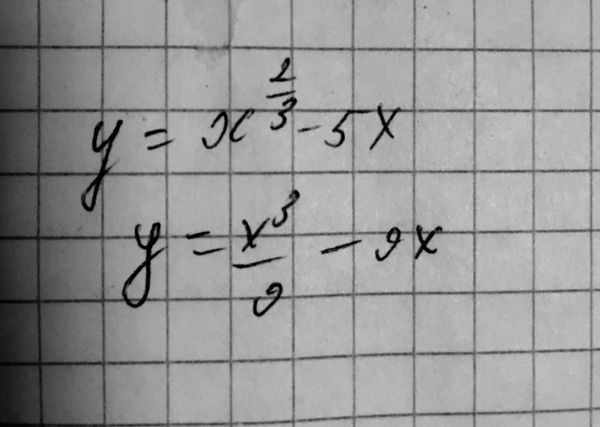 y = x^{2/3} - 5x
y = x^3/9 - 9x